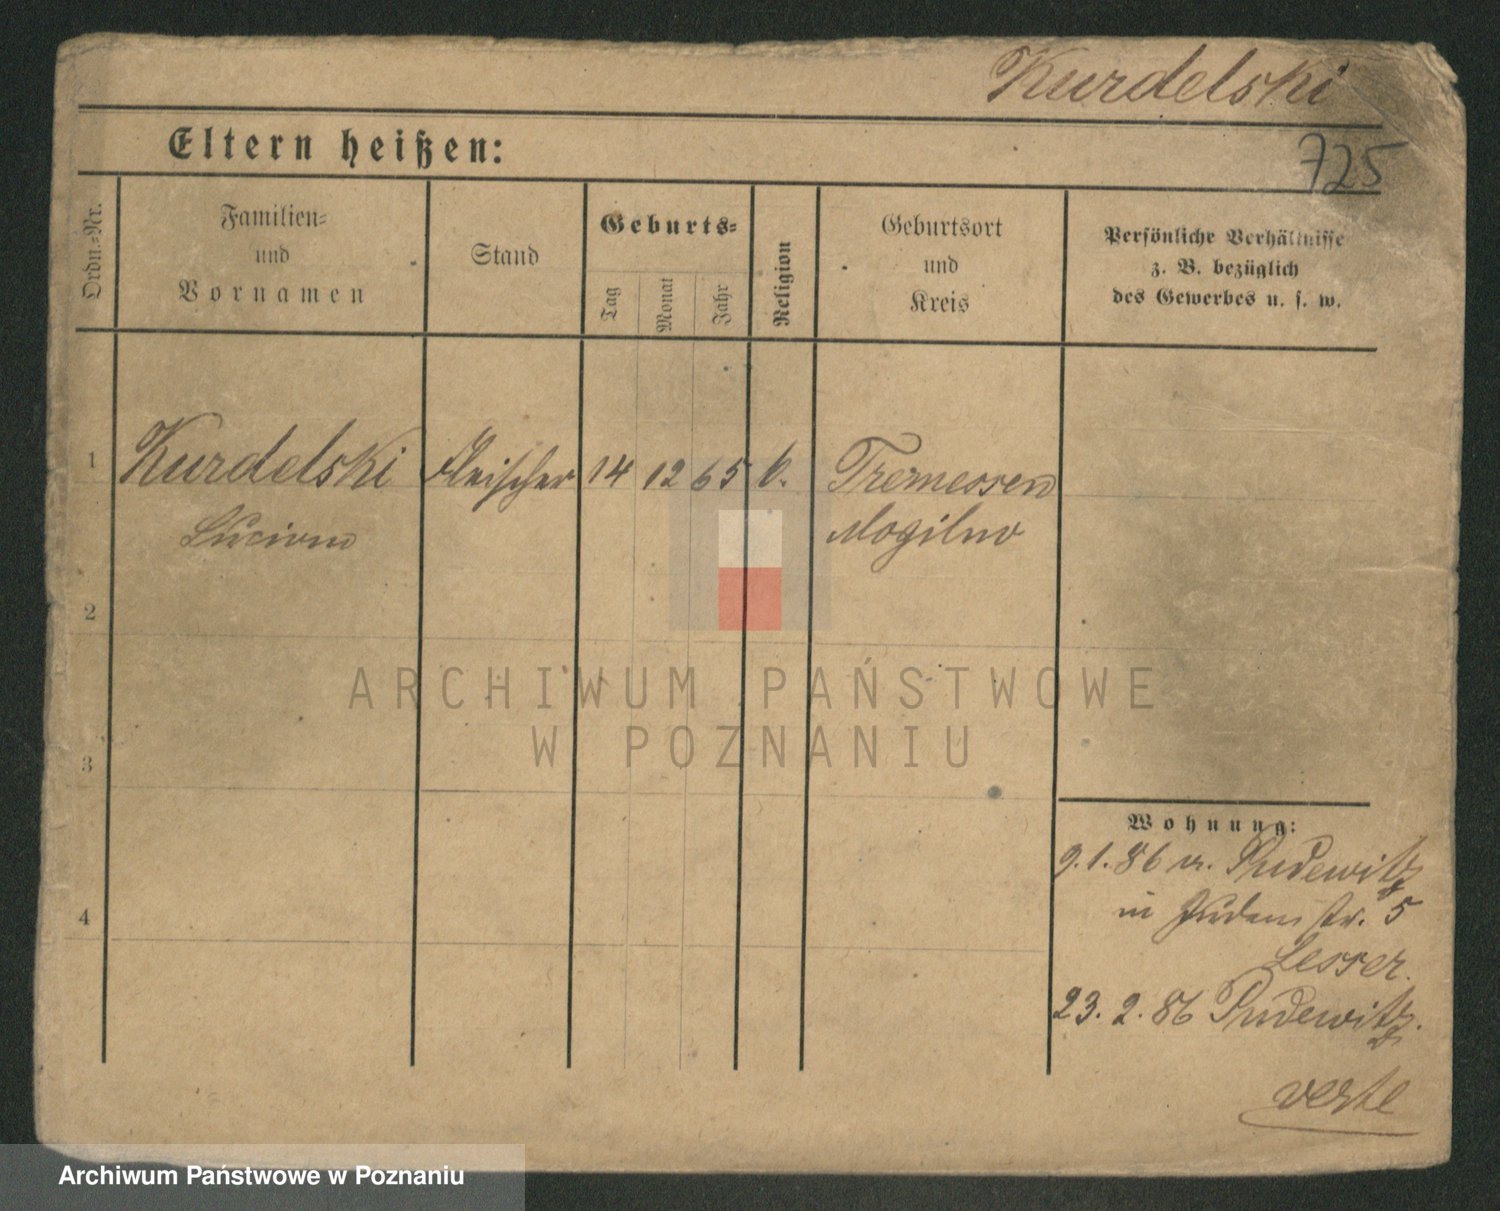 Kurdelski
Eltern heißen:
725
Ordn.-Nr.
Familien-
und
Vornamen
Stand
Geburts-
Tag
Monat
Jahr
Religion
Geburtsort
und
Kreis
Persönliche Verhältnisse
z. B. bezüglich
des Gewerbes u. s. w.
1
Kurdelski
Fleischer
14
12
65
k.
Tremessen
Lucian
Mogilno
2
ARCHIWUM PAŃSTWOWE
W POZNANIU
3
Wohnung:
9.1.86 v. Pudewitz
in Judenstr. 5
Lesser.
4
23.2.86 Pudewitz.
verte
Archiwum Państwowe w Poznaniu